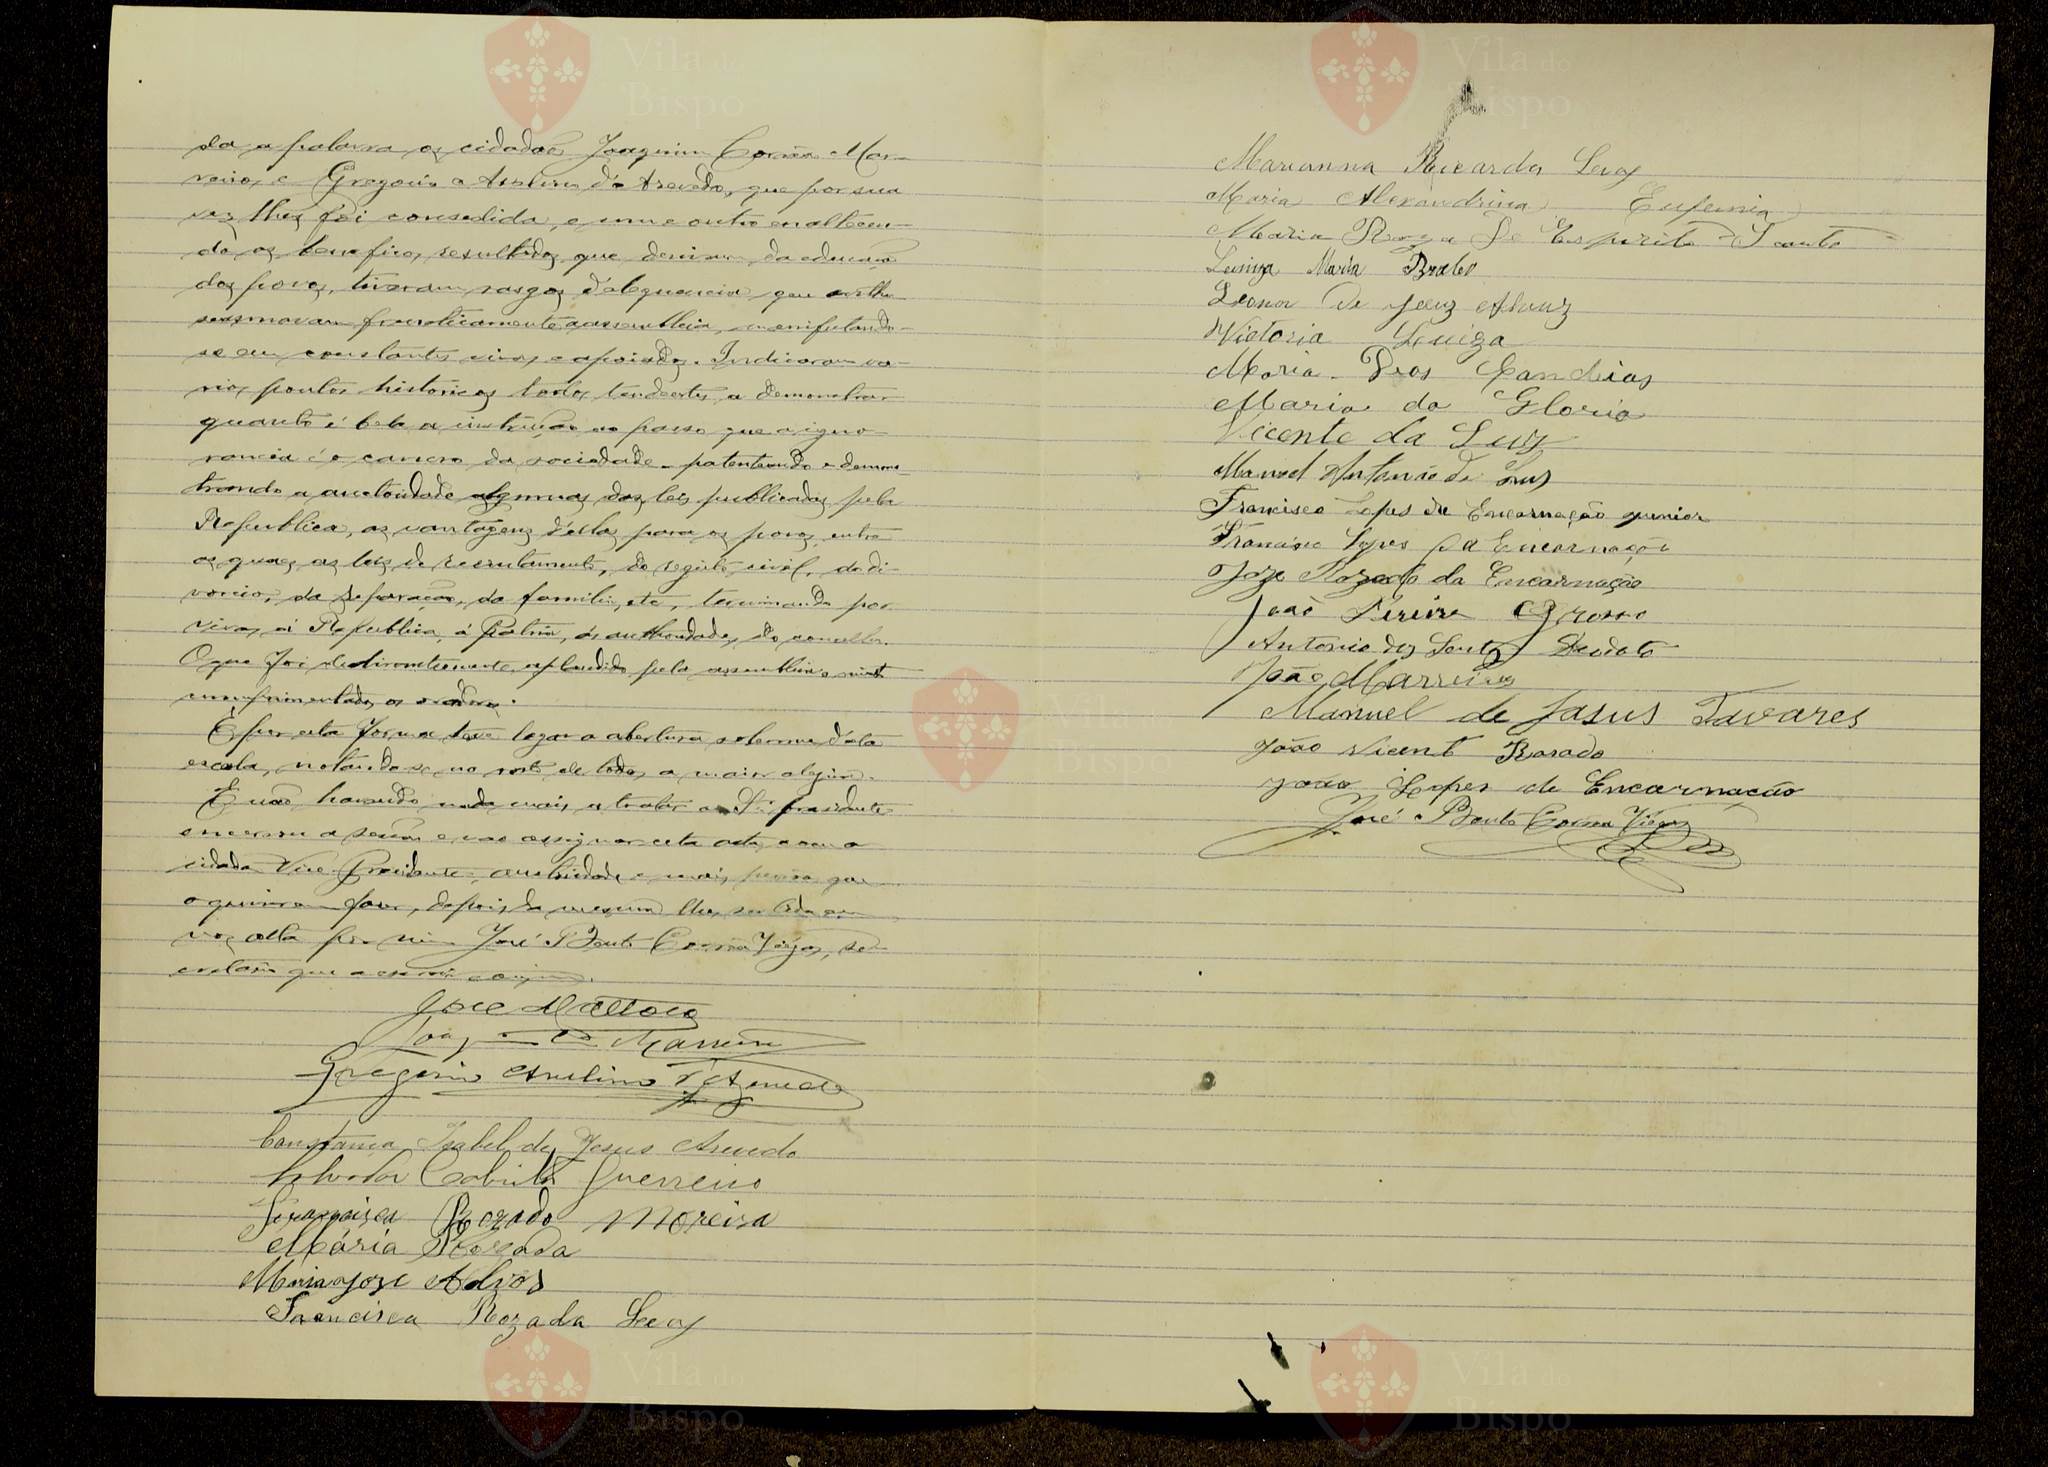 da a palavra os cidadãos Joaquim Correia Mar-
reiros e Gregorio Avelino d'Azevedo, que por sua
vez lhes foi consedida, e um e outro enaltecen-
do os beneficos resultados que derivam da educação
dos povos, tiveram rasgos d'eloquencia que
freneticamente a assembleia, manifestando-
se em constantes vivas e apoiados. Indicaram va-
rios pontos historicos todos tendentes a demonstrar
quanto é bela a instrução ao passo que a igno-
rancia é o cancro da sociedade patenteando e demons-
trando a auctoridade algumas das leis publicadas pela
Republica, as vantagens d'ellas para os povos, entre
as quaes as leis de recrutamento, do registo civil, do di-
vorcio, da separação, da familia, etc, terminando por
vivas á Republica, á Patria, ás authoridades do concelho.
O que foi aplaudido pela assembleia e
cumprimentados os oradores.
E por esta forma teve logar a abertura solemne d'esta
escola, notando-se no rosto de todos a maior alegria.
E não havendo nada mais a tratar o Sr. presidente
encerrou a sessão e vae assignar esta acta com o
cidadão Vice-Presidente, authoridade e mais pessoas que
o queiram fazer, depois da mesma lhes ser lida em
voz alta por mim José Bento Correia Viegas, se-
cretario que a escrevi e assigno.
José Mattoso
Joaq Marreiros
Gregorio Avelino d'Azevedo
Constança Isabel de Jesus Azevedo
Salvador Cabrita Guerreiro
Francisca Rozado Moreira
Mária Rozada
Maria Joze
Francisca Rozada Leoy
Marianna Ricarda Leoy
Maria Alexandrina Eufemia
Maria Roza do Espirito Santo
Luiza Maria
Leonor de Jezus
Victoria Luiza
Maria Candeias
Maria da Gloria
Vicente da Luz
Manoel Antonio da Luz
Francisco Lopes da Encarnação junior
Francisco Lopes da Encarnação
Joze Rozado da Encarnação
João Pereira Grosso
Antonio dos Santos Deodato
João Marreiros
Manuel de Jasus Tavares
João Vicente Rosado
João Lopes da Encarnação
José Bento Correia Viegas
Vila do Bispo
Vila do Bispo
Vila do Bispo
Vila do Bispo
Vila do Bispo